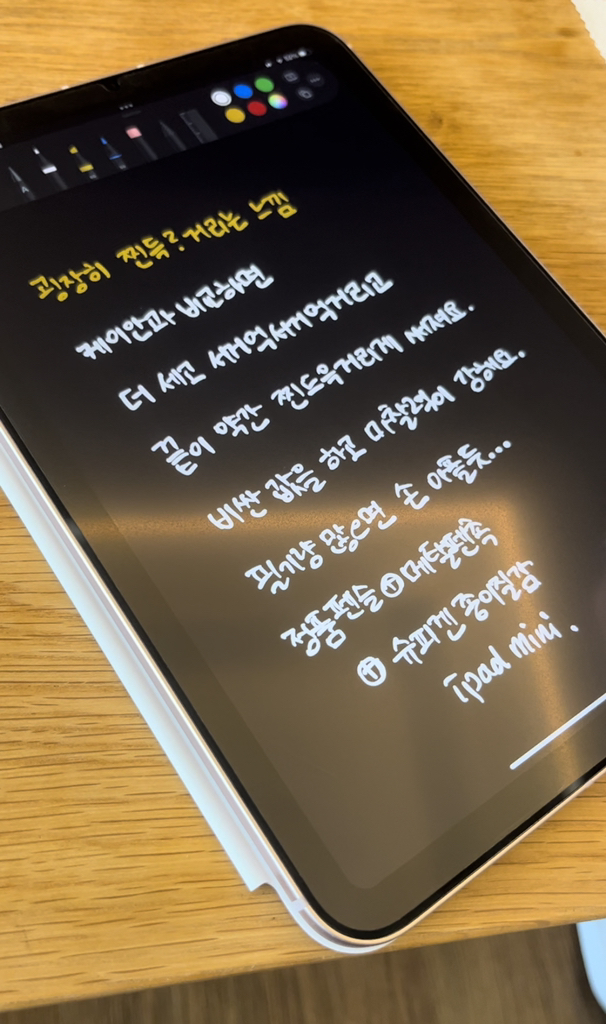 굉장히 찐득?거리는 느낌
케이안과 비교하면
더 세고 서걱서걱거리고
끝이 약간 찐득거리게 써져요.
비싼 값을 하고 마찰력이 강해요.
필기량 많으면 손 아플듯...
정품펜슬 + 메탈펜촉
+ 슈피겐 종이질감
ipad mini.